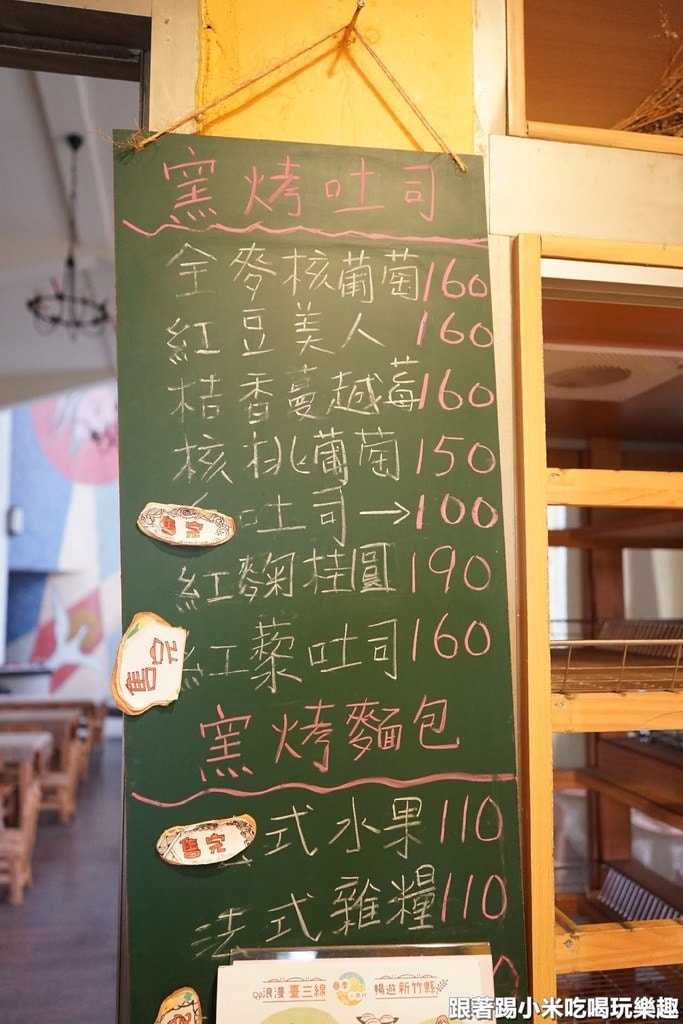 窯烤吐司
全麥核葡萄160
紅豆美人160
桔香蔓越莓160
核桃葡萄150
售完 吐司→100
紅麴桂圓190
售完 紅藜吐司160
窯烤麵包
售完 式水果110
法式雜糧110
Qp浪漫臺三線 春季 暢遊新竹縣
跟著踢小米吃喝玩樂趣